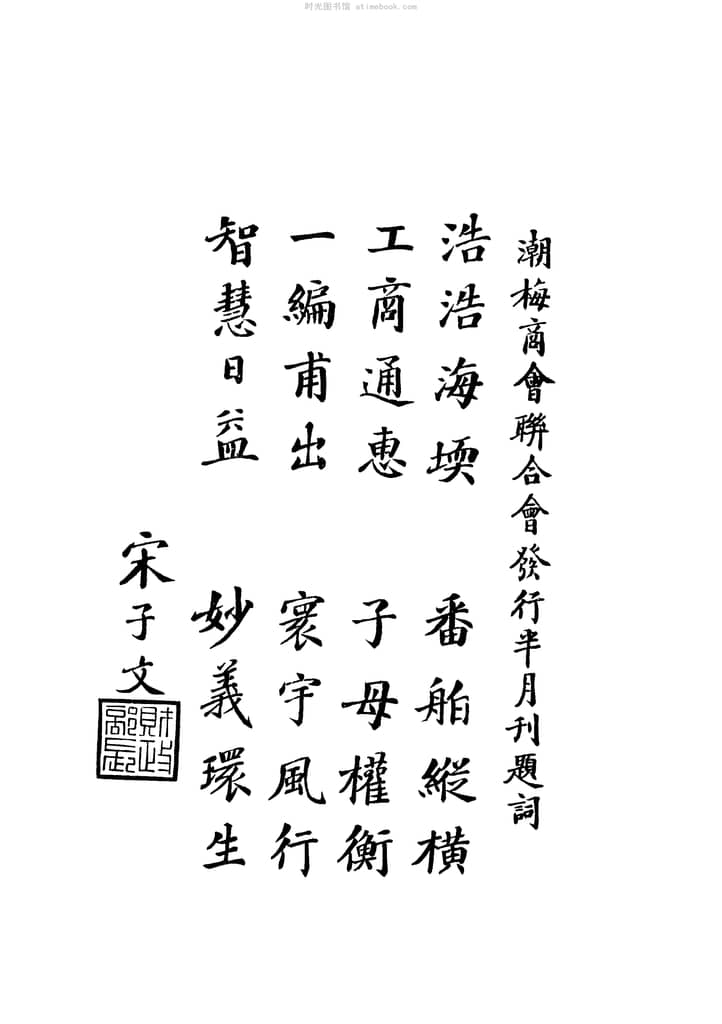 时光图书馆 atimebook.com
潮梅商會聯合會發行半月刊題詞
浩浩海堧 番舶縱橫
工商通惠 子母權衡
一編甫出 寰宇風行
智慧日益 妙義環生
宋子文
財政部長